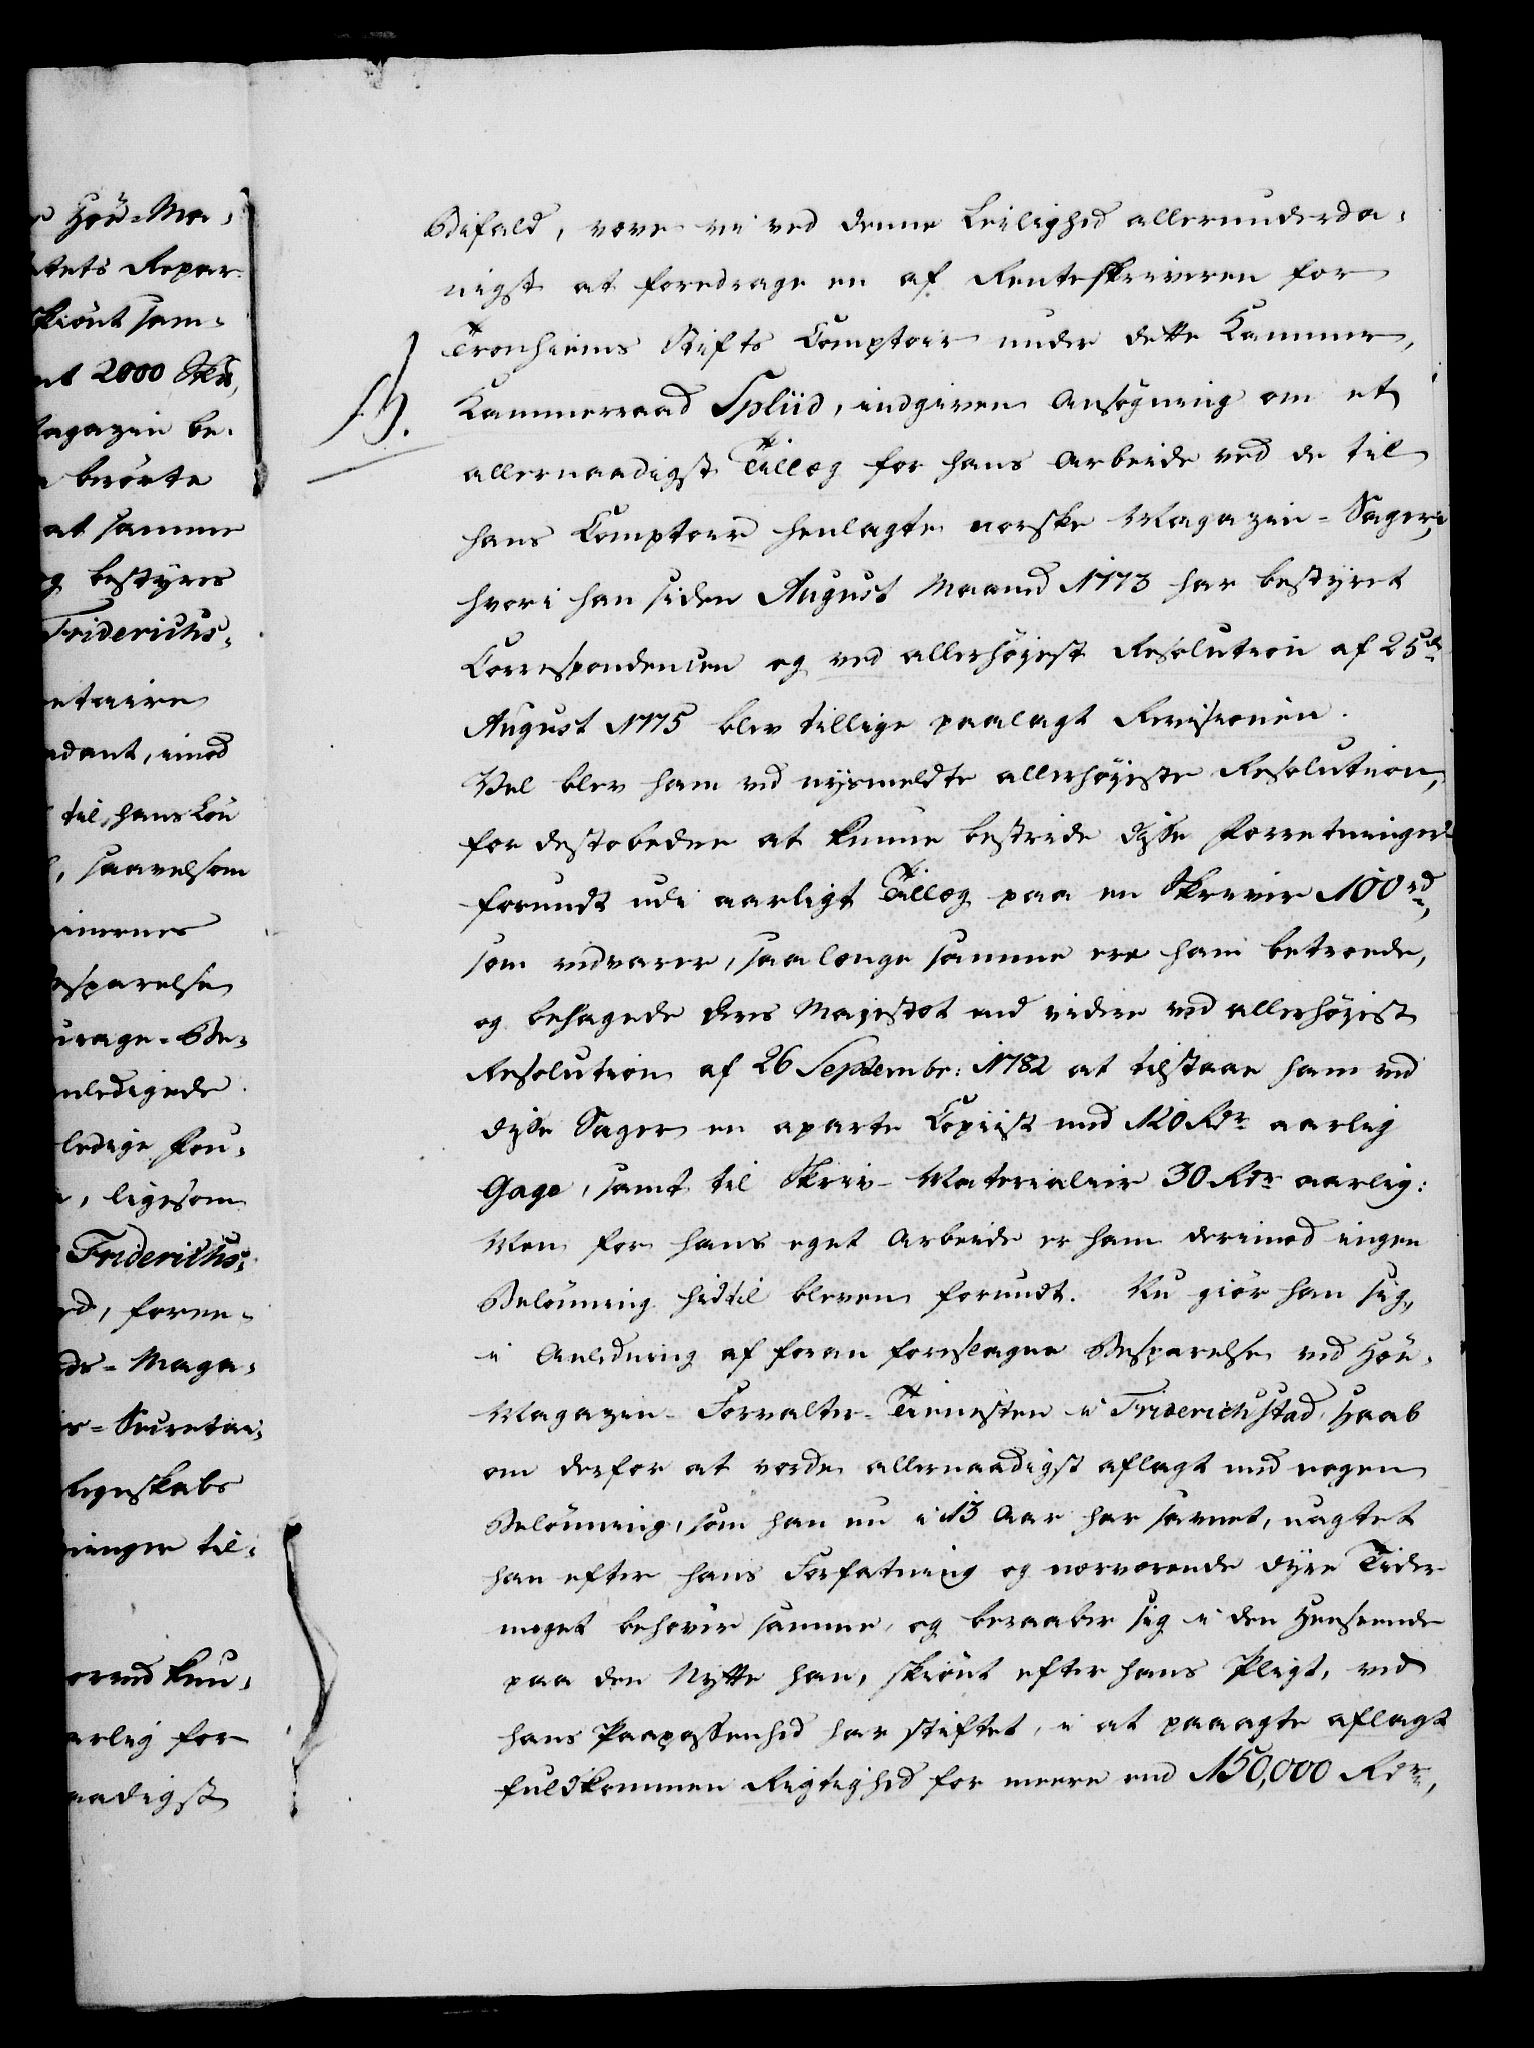 r Höe-Ma-
tets Repar-
skiönt sam-
nt 2000 Rdr,
agazin be-
berörte
at samme
g bestyres
Friderichs-
etairen
ndant, imod
til hans Lön
, saavelsom
inernes
sparelse
urage-Be-
nledigede
ledige For-
, ligesom
Friderichs-
ed, foren-
de-Maga-
s-Secretai-
egnskabs
ninger til-
orved kun-
arlig for
aadigst
Bifald, vove vi ved denne Leilighed allerunderda-
nigst at foredrage en af Renteskriveren for
Tronhiems Stifts Comptoir under dette Kammer,
B. Kammerraad Spliid, indgiven Ansögning om et
allernaadigst Tillæg for hans Arbeide ved de til
hans Comptoir henlagte norske Magazin-Sager,
hvori han siden August Maaned 1773 har bestyret
Correspondencen og ved allerhöjest Resolution af 25de
August 1775 blev tillige paalagt Revisionen.
Vel blev ham ved nysmeldte allerhöjeste Resolution,
for destobedre at kunne bestride disse Forretninger
forundt udi aarligt Tillæg paa en Skriver 100 rd,
som vedvarer, saalænge samme ere ham betroede,
og behagede Deres Majestet end videre ved allerhöjest
Resolution af 26 Septembr: 1782 at tilstaae ham ved
disse Sager en aparte Copiist med 120 Rdr aarlig
Gage, samt til Skriv-Materialier 30 Rdr aarlig:
Men for hans eget Arbeide er ham derimod ingen
Belönning hidtil bleven forundt. Nu giör han sig,
i Anledning af foran foreslagne Besparelse ved Höe-
Magazin-Forvalter-Tienesten i Friderichstad, Haab
om derfor at vorde allernaadigst aflagt med nogen
Belönning, som han nu i 13 Aar har savnet, uagtet
han efter hans Forfatning og nærværende dyre Tider
meget behöver samme, og beraaber sig i den Henseende
paa den Nytte han, skiönt efter hans Pligt, ved
hans Paapassenhed har stiftet, i at paaagte aflagt
fuldkommen Rigtighed for meere end 150,000 Rdr,